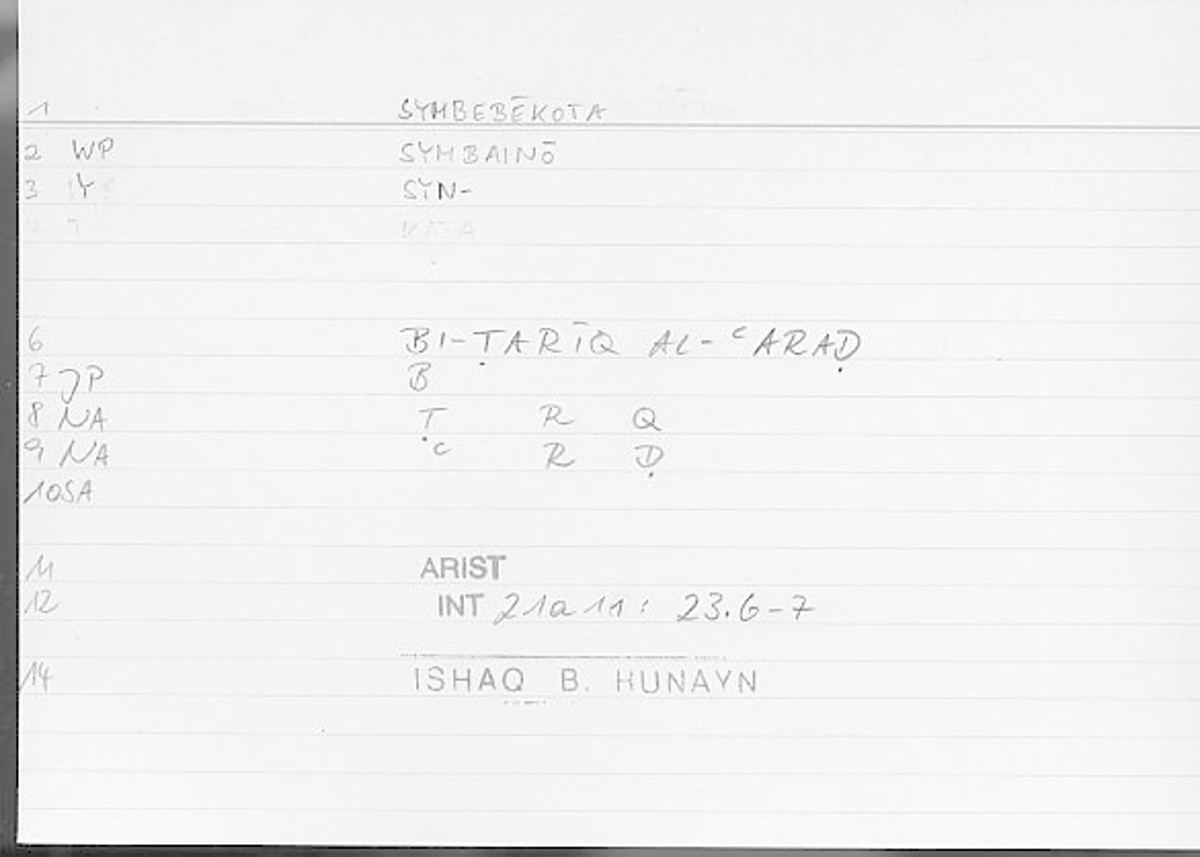 1 SYMBEBĒKOTA
2 WP SYMBAINŌ
3 Y SYN-
KATA
6 BI-ṬARĪQ AL-ᶜARAḌ
7 JP B
8 NA Ṭ R Q
9 NA ᶜ R Ḍ
10 SA
11 ARIST
12 INT 21a11: 23.6-7
14 ISHAQ B. HUNAYN